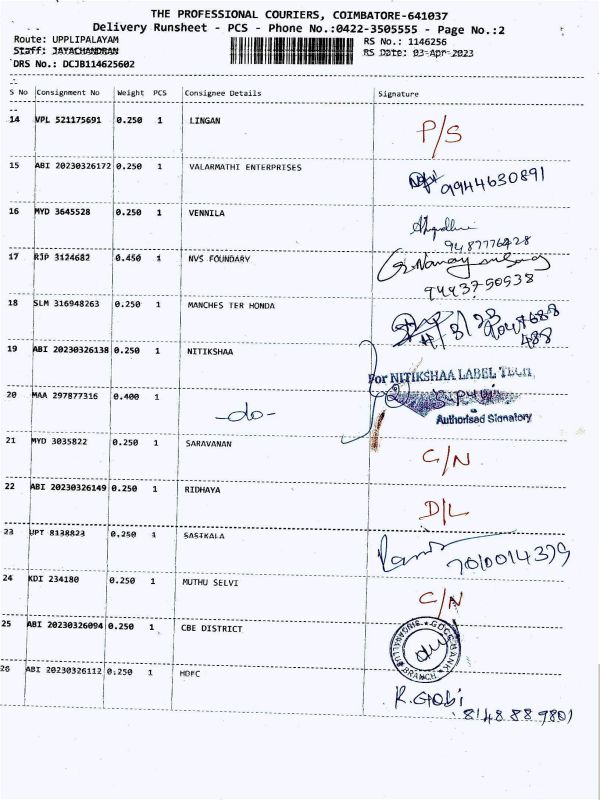 THE PROFESSIONAL COURIERS, COIMBATORE-641037
Delivery Runsheet - PCS - Phone No.:0422-3505555 - Page No.:2
Route: UPPLIPALAYAM RS No.: 1146256
Staff: JAYACHANDRAN RS Date: 03-Apr-2023
DRS No.: DCJB114625602
S No Consignment No Weight PCS Consignee Details Signature
14 VPL 521175691 0.250 1 LINGAN P/S
15 ABI 20230326172 0.250 1 VALARMATHI ENTERPRISES 9944630891
16 MYD 3645528 0.250 1 VENNILA
9487776428
17 RJP 3124682 0.450 1 NVS FOUNDARY
9443750538
18 SLM 316948263 0.250 1 MANCHES TER HONDA
488
19 ABI 20230326138 0.250 1 NITIKSHAA
For NITIKSHAA LABEL TECH,
20 MAA 297877316 0.400 1 -do-
Authorised Signatory
21 MYD 3035822 0.250 1 SARAVANAN C/N
22 ABI 20230326149 0.250 1 RIDHAYA D/L
23 UPT 8138823 0.250 1 SASIKALA 7010014379
24 KDI 234180 0.250 1 MUTHU SELVI C/N
25 ABI 20230326094 0.250 1 CBE DISTRICT
BRANCH
26 ABI 20230326112 0.250 1 HDFC R.Gobi
8148889801